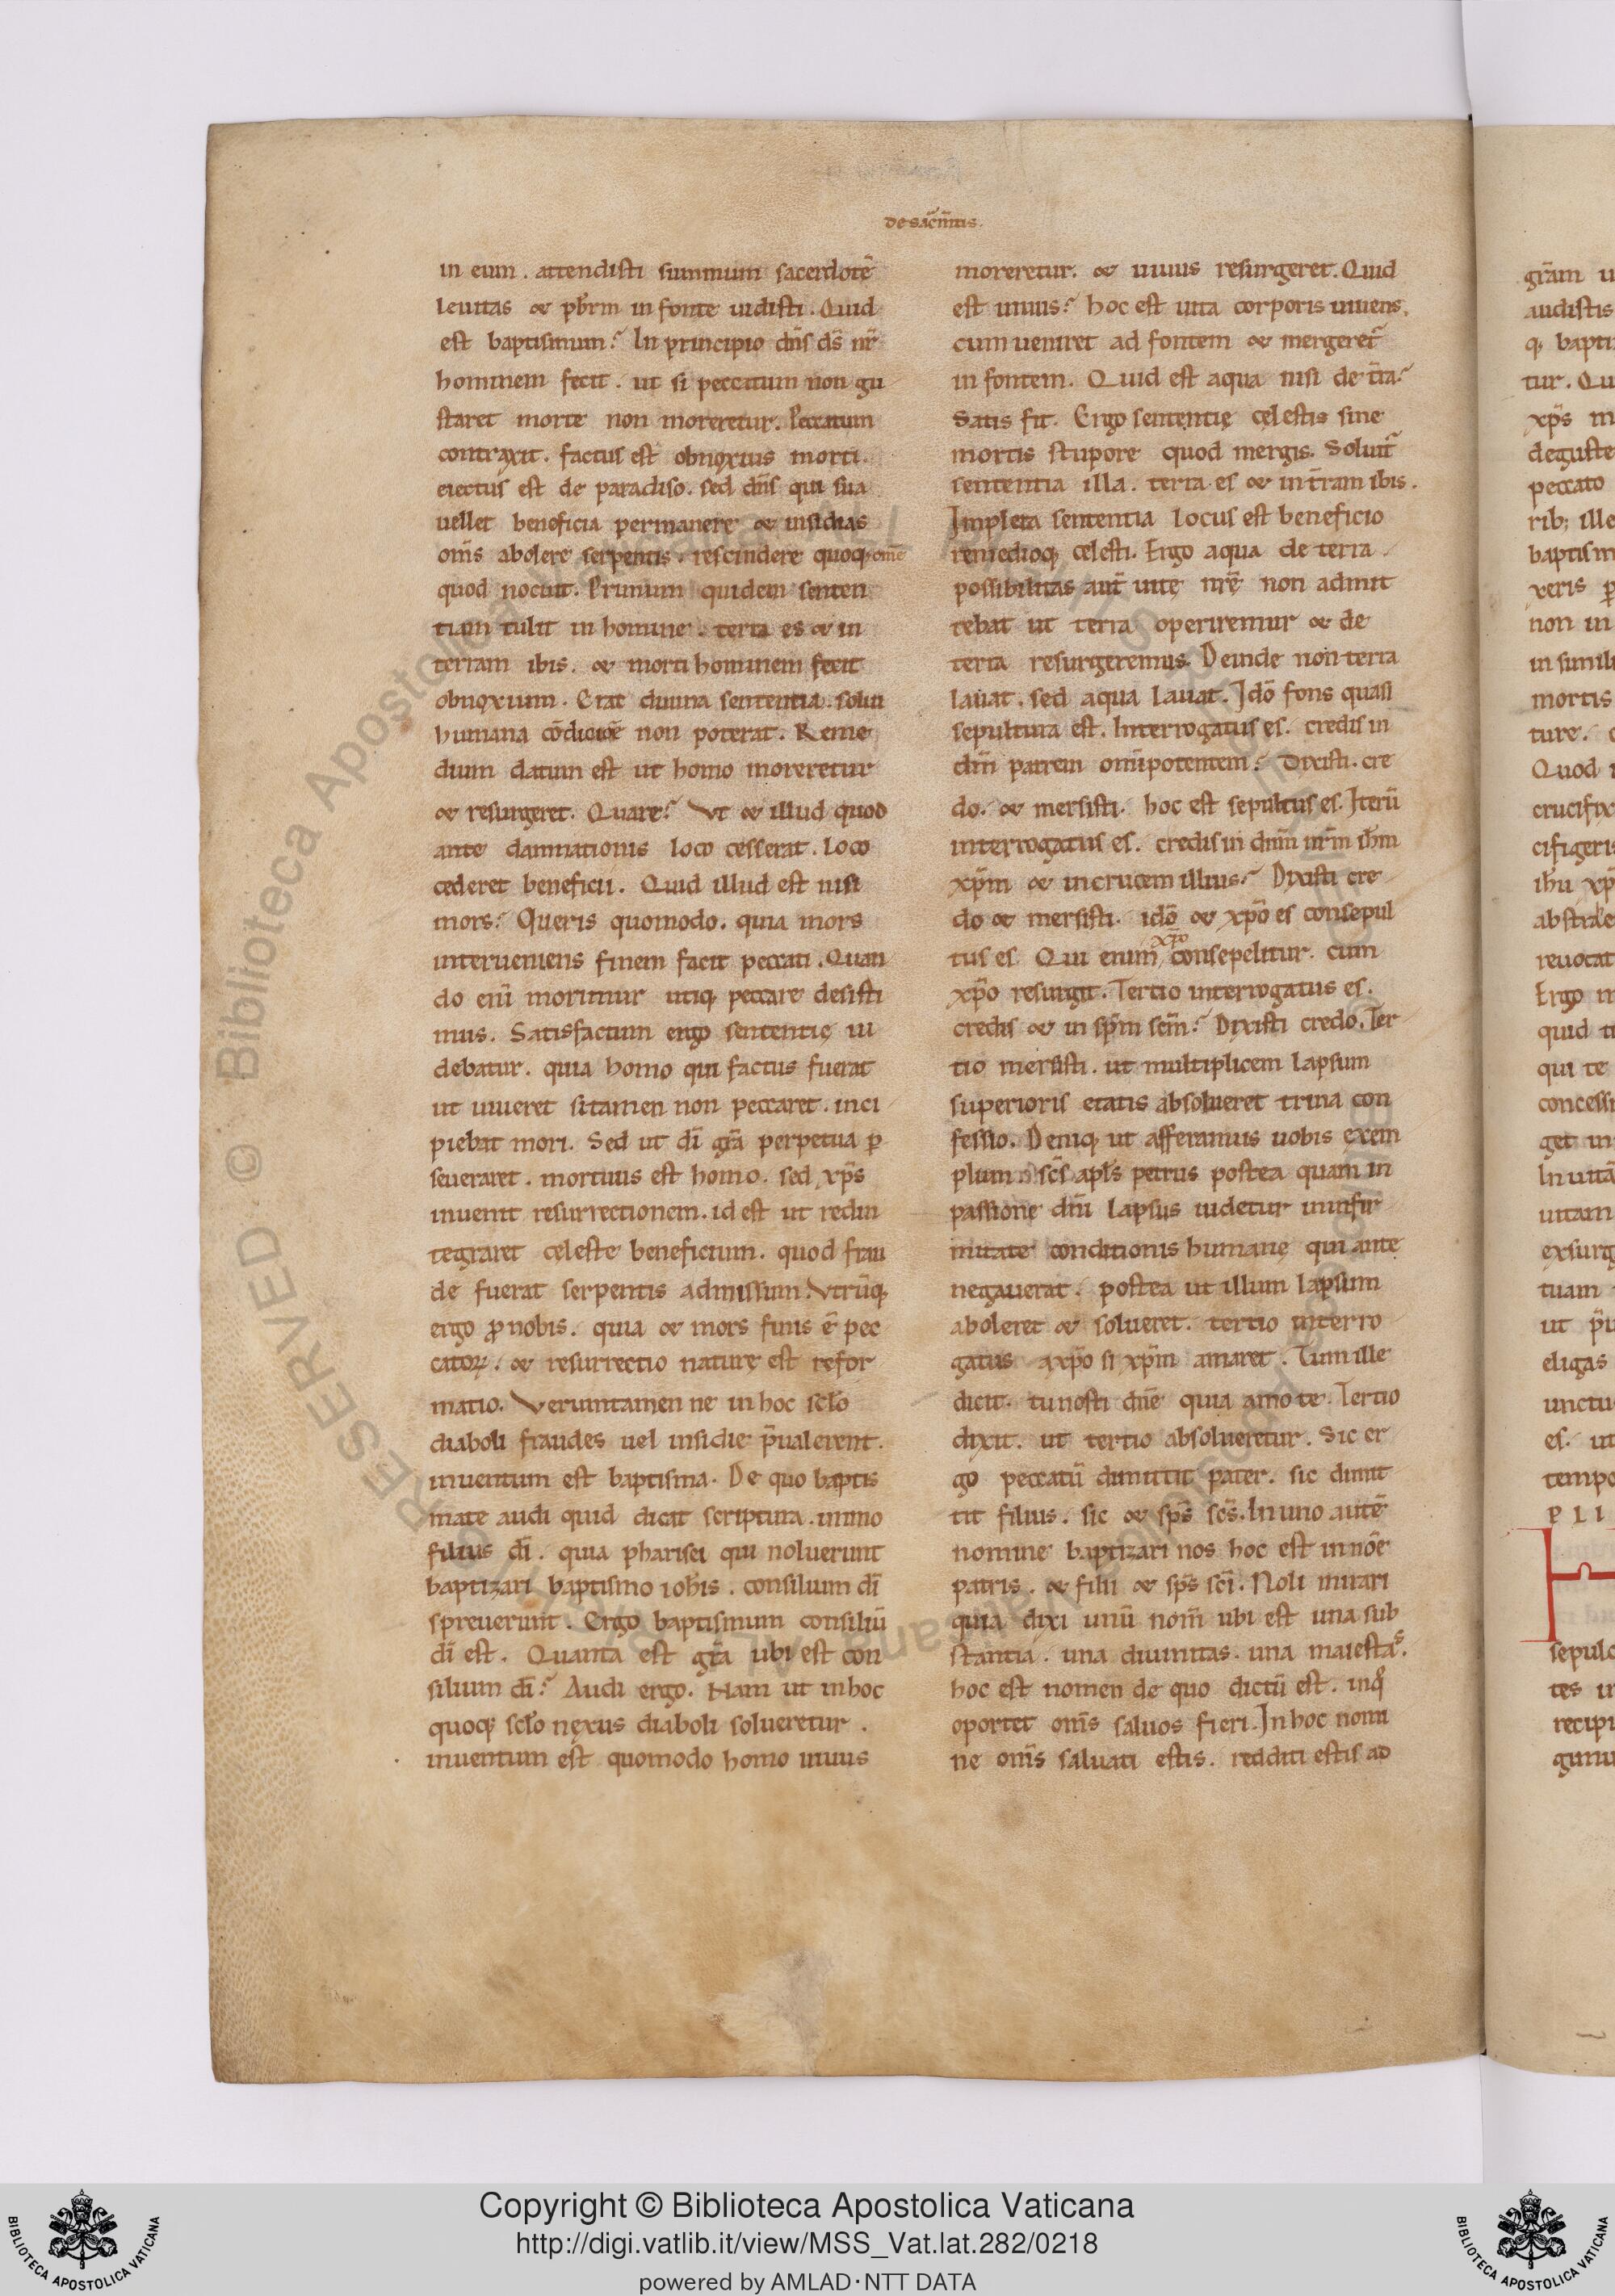 de sac̄mtis.
in eum. attendisti summum sacerdotē
leuitas & pbr̄m in fonte uidisti. Quid
est baptismum? In principio dn̄s ds̄ nr̄
hominem fecit. ut si peccatum non gu
staret morte non moreretur. Peccatum
contraxit. factus est obnoxius morti.
eiectus est de paradiso. sed dn̄s qui sua
uellet beneficia permanere & insidias
om̄s abolere serpentis. rescindere quoq; om̄e
quod nocuit. Primum quidem senten
tiam tulit in homine. terra es & in
terram ibis. & morti hominem fecit
obnoxium. Erat diuina sententia. solui
humana cōdicioē non poterat. Reme
dium datum est ut homo moreretur
& resurgeret. Quare? Vt & illud quod
ante damnationis loco cesserat. loco
cederet beneficii. Quid illud est nisi
mors? Queris quomodo. quia mors
interueniens finem facit peccati. Quan
do eni̅ morimur utiq; peccare desisti
mus. Satisfactum ergo sententię ui
debatur. quia homo qui factus fuerat
ut uiueret si tamen non peccaret. inci
piebat mori. Sed ut dī grā perpetua ꝑ
seueraret. mortuus est homo. sed xp̄s
inuenit resurrectionem. id est ut redin
tegraret celeste beneficium. quod frau
de fuerat serpentis admissum. Vtrūq;
ergo ꝓ nobis. quia & mors finis ē pec
catoꝝ. & resurrectio naturę est refor
matio. Veruntamen ne in hoc sclo̅
diaboli fraudes uel insidie p̄ualerent.
inuentum est baptisma. De quo baptis
mate audi quid dicat scriptura. immo
filius dī. quia pharisei qui noluerunt
baptizari baptismo ioh̄is. consilium dī
spreuerunt. Ergo baptismum consiliū
dī est. Quanta est grā ubi est con
silium dī? Audi ergo. Nam ut in hoc
quoq; sclo̅ nexus diaboli solueretur.
inuentum est quomodo homo uiuus
moreretur. & uiuus resurgeret. Quid
est uiuus? hoc est uita corporis uiuens.
cum ueniret ad fontem & mergeret̄
in fontem. Quid est aqua nisi de t̄ra?
Satis fit. Ergo sententię celestis sine
mortis stupore quod mergis. Soluit̄
sententia illa. terra es & in t̄ram ibis.
Impleta sententia locus est beneficio
remedioq; celesti. Ergo aqua de terra
possibilitas aut̄ uitę nr̄ę non admit
tebat ut terra operiremur & de
terra resurgeremus. Deinde non terra
lauat. sed aqua lauat. Idō fons quasi
sepultura est. Interrogatus es. credis in
dm̄ patrem om̄ipotentem? Dixisti. cre
do. & mersisti. hoc est sepultus es. Iterū
interrogatus es. credis in dnm̄ nr̄m ihm̄
xp̄m & in crucem illius? Dixisti cre
do & mersisti. idō & xp̄o es consepul
tus es. Qui enim xp̄o consepelitur. cum
xp̄o resurgit. Tertio interrogatus es.
credis & in sp̄m scm̄? Dixisti credo. Ter
tio mersisti. ut multiplicem lapsum
superioris etatis absolueret trina con
fessio. Deniq; ut afferamus uobis exem
plum. sc̄s apl̄s petrus postea quam in
passione dn̄i lapsus uidetur in infir
mitate conditionis humanę qui ante
negauerat. postea ut illum lapsum
aboleret & solueret. tertio interro
gatus a xp̄o si xp̄m amaret. Tum ille
dicit. tu nosti dn̄e quia amo te. Tertio
dixit. ut tertio absolueretur. Sic er
go peccatū dimittit pater. sic dimit
tit filius. sic & sp̄s sc̄s. In uno autē
nomine baptizari nos hoc est in noē
patris. & filii & sp̄s sc̄i. Noli mirari
quia dixi unū nom̄ ubi est una sub
stantia. una diuinitas. una maiestas.
hoc est nomen de quo dictū est. in qͦ
oportet om̄s saluos fieri. In hoc nomi
ne om̄s saluati estis. redditi estis ad
grām u
audistis
q; bapti
tur. Qu
xp̄s m
deguste
peccato
rib; ille
baptism
xeris ꝑ
non in
in simili
mortis
ture.
Quod
crucifix
cifigeris
ihu̅ xp̄
abstrae
reuocat
Ergo m
quid ti
qui te
concessi
get in
In uitā
uitam
exsurg
tuam
ut p̄u
eligas
unctu
es. ut
tempo
PLI
H
sepulc
tes in
recipi
gimu
© Biblioteca Apostolica Vaticana
RESERVED
Copyright © Biblioteca Apostolica Vaticana
http://digi.vatlib.it/view/MSS_Vat.lat.282/0218
powered by AMLAD·NTT DATA
BIBLIOTECA APOSTOLICA VATICANA
BIBLIOTECA APOSTOLICA VATICANA